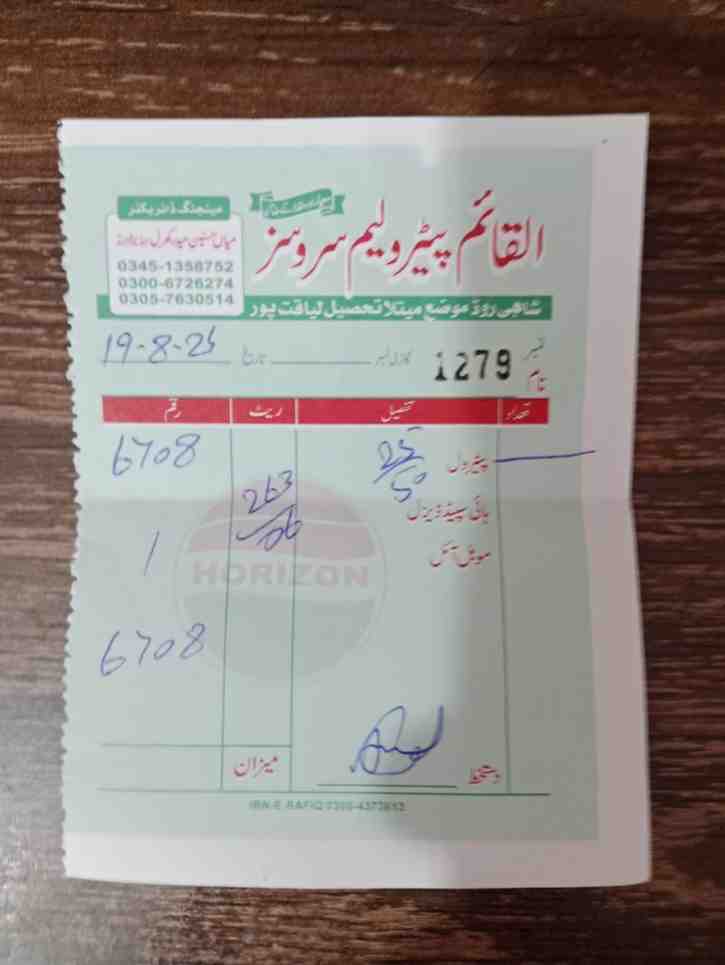 القائم پیٹرولیم سروسز
مینجنگ ڈائریکٹر
میاں حسنین حیدر
0345-1358752
0300-6726274
0305-7630514
شاہی روڈ موضع میتلا تحصیل لیاقت پور
نمبر 1279 گاڑی نمبر تاریخ 19-8-25
نام
تعداد تفصیل ریٹ رقم
پیٹرول 25/50 263/06 6708
ہائی سپیڈ ڈیزل
موبل آئل
HORIZON
6708
دستخط میزان
IBN-E-RAFIQ 0300-4373613